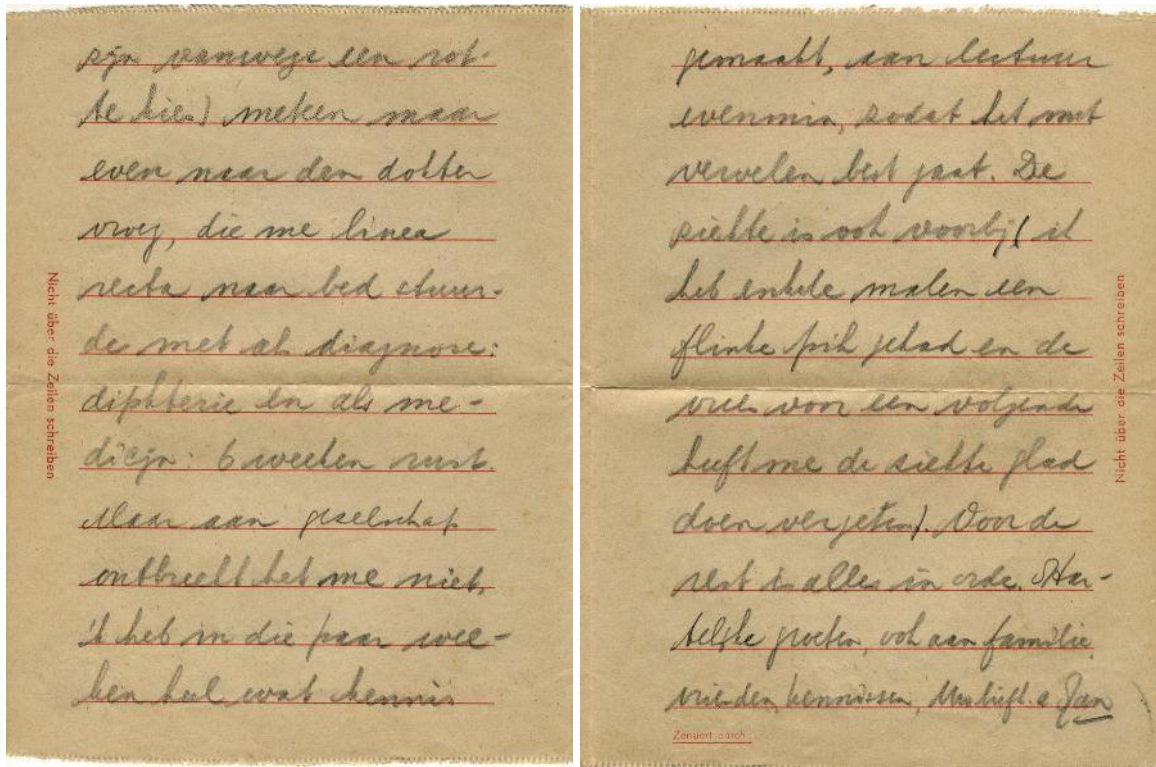 zijn vanwege een rot-
te kies) meteen maar
even naar den dokter
vroeg, die me linea
recta naar bed stuur-
de met als diagnose:
diphterie en als me-
dicijn: 6 weeken rust.
Maar aan gezelschap
ontbreekt het me niet,
'k heb in die paar wee-
ken heel wat kennis
Nicht über die Zeilen schreiben
gemaakt, aan lectuur
evenmin, zodat het met
vervelen best gaat. De
ziekte is ook voorbij (ik
heb enkele malen een
flinke prik gehad en de
vrees voor een volgende
heeft me de ziekte glad
doen vergeten). Voor de
rest is alles in orde. Har-
telijke groeten, ook aan familie,
vrienden, kennissen, Jan
Zensiert durch:
Nicht über die Zeilen schreiben